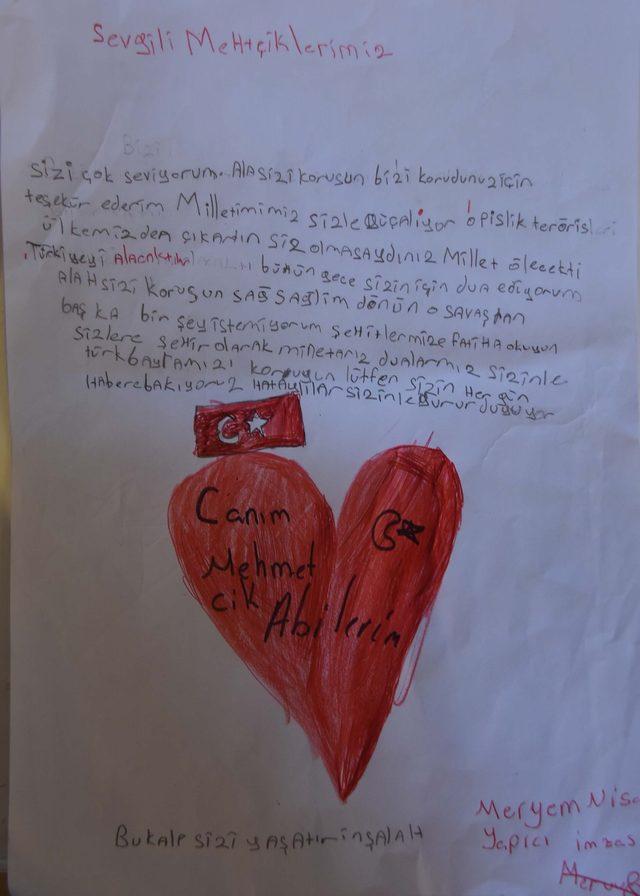 Sevgili Mehtçiklerimiz
Bizi
sizi çok seviyorum. Ala sizi korusun bizi korudunuz için
teşekür ederim Milletimimiz sizle güçaliyor o pislik teröristleri
ülkemizden çıkartın siz olmasaydınız Millet ölecekti
Türkiyeyi alacaktılar bütün gece sizin için dua ediyorum
Alah sizi korusun sağ sağlim dönün o savaştan
başka bir şey istemiyorum şehitlermize fatiha okuyun
sizlere şehir olarak miletanız dualarmız sizinle
türk bayramızı koruyun lütfen sizin her gün
habere bakıyoruz Hataylılar sizinle gurur duyuyor
Canım
Mehmet
çik Abilerim
Bu kalp sizi yaşatır inşalah
Meryem Nisa
Yapıcı imzas